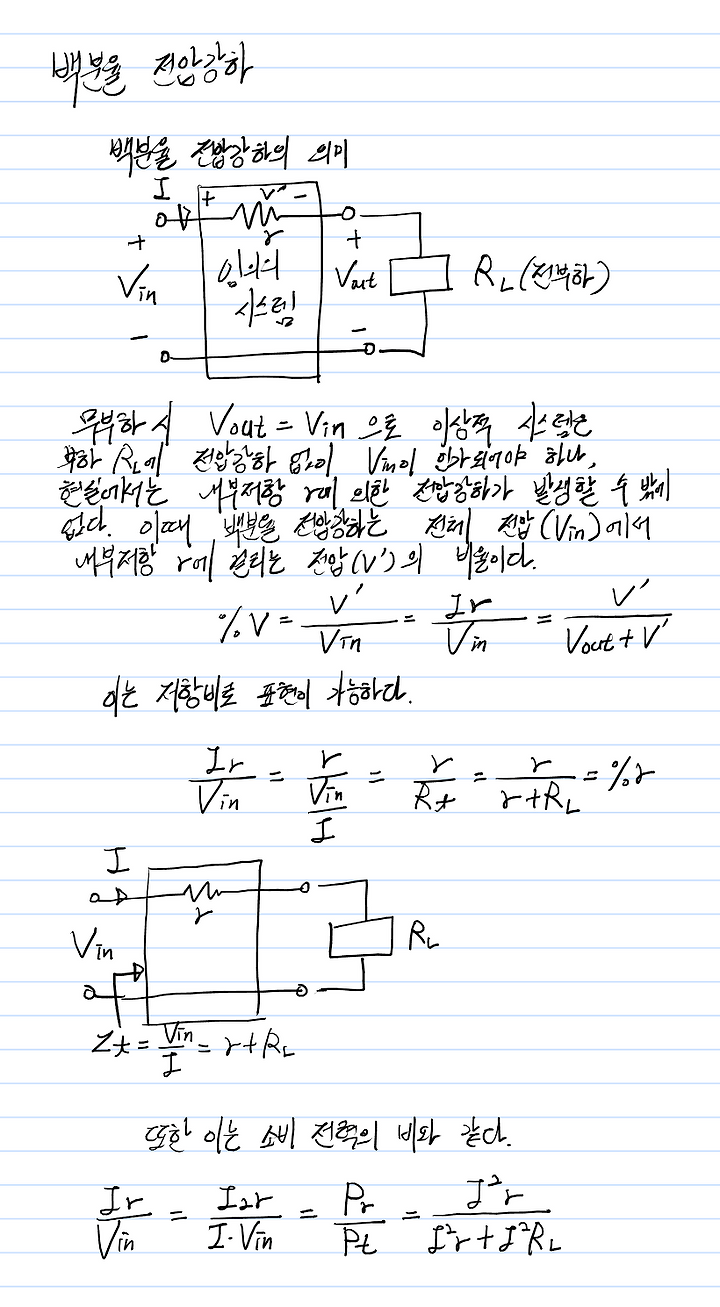 백분율 전압강하
백분율 전압강하의 의미
I
+ V' -
r
+ Vin -
임의의
시스템
+ Vout -
RL (전부하)
무부하 시 Vout = Vin 으로 이상적 시스템은
부하 RL에 전압강하 없이 Vin이 인가되어야 하나,
현실에서는 내부저항 r에 의한 전압강하가 발생할 수 밖에
없다. 이때 백분율 전압강하는 전체 전압(Vin)에서
내부저항 r에 걸리는 전압(V')의 비율이다.
%V = V'/Vin = Ir/Vin = V'/(Vout + V')
이는 저항비로 표현이 가능하다.
Ir/Vin = r/(Vin/I) = r/Rt = r/(r+RL) = %r
I
r
Vin
RL
Zt = Vin/I = r+RL
또한 이는 소비 전력의 비와 같다.
Ir/Vin = I2r/(I·Vin) = Pr/Pt = I²r/(I²r + I²RL)